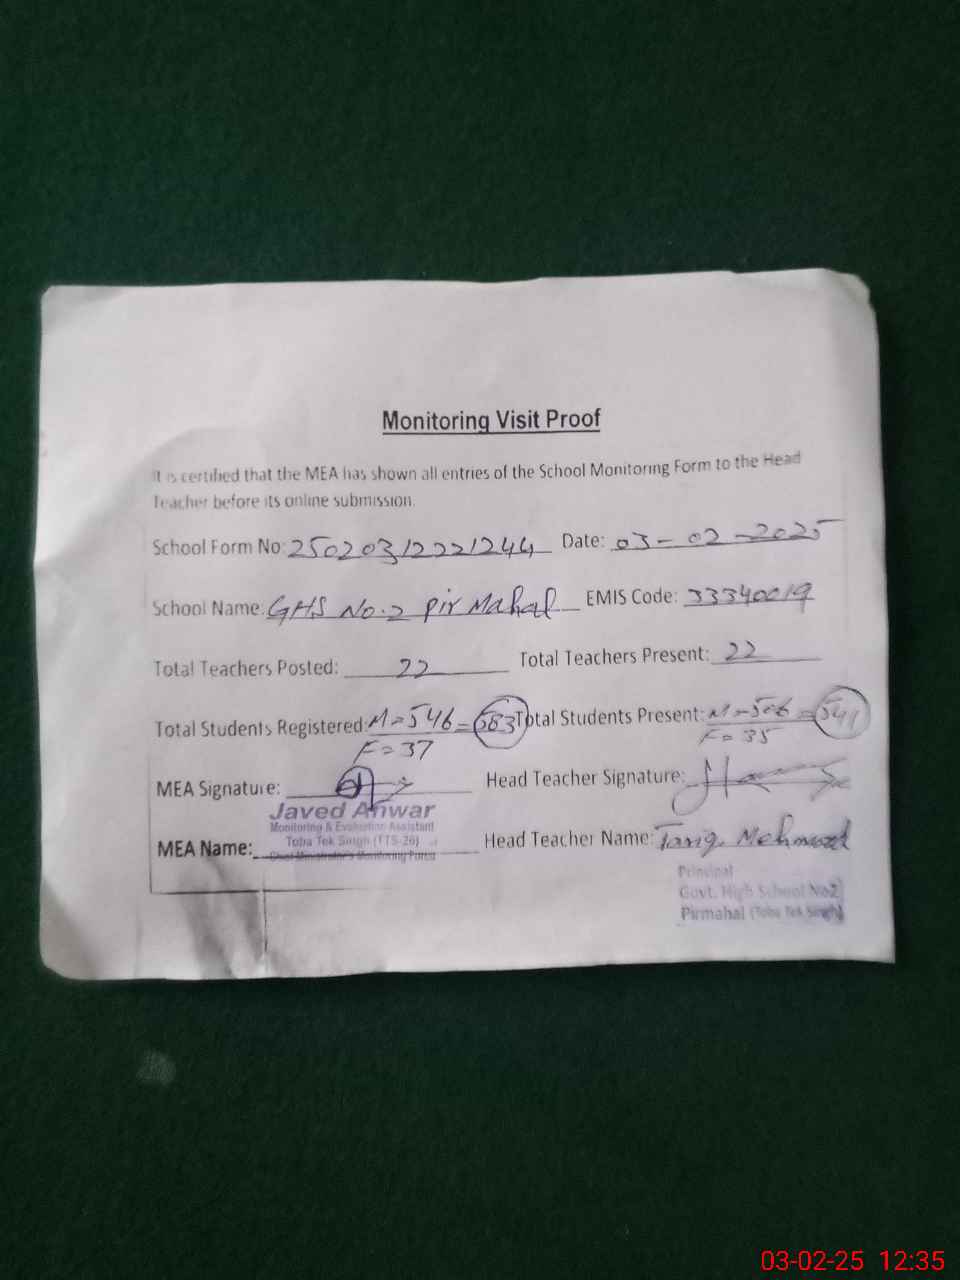 Monitoring Visit Proof
It is certified that the MEA has shown all entries of the School Monitoring Form to the Head
Teacher before its online submission.
School Form No: 25020312221244 Date: 03-02-2025
School Name: GHS No.2 Pir Mahal EMIS Code: 33340019
Total Teachers Posted: 22 Total Teachers Present: 22
Total Students Registered: M=546 =583 Total Students Present: M=506 =541
F=37 F=35
MEA Signature: Head Teacher Signature:
Javed Anwar
Monitoring & Evaluation Assistant
Toba Tek Singh (TTS-26)
Chief Minister's Monitoring Force
MEA Name: Head Teacher Name: Tariq Mehmood
Principal
Govt. High School No2
Pirmahal (Toba Tek Singh)
03-02-25 12:35